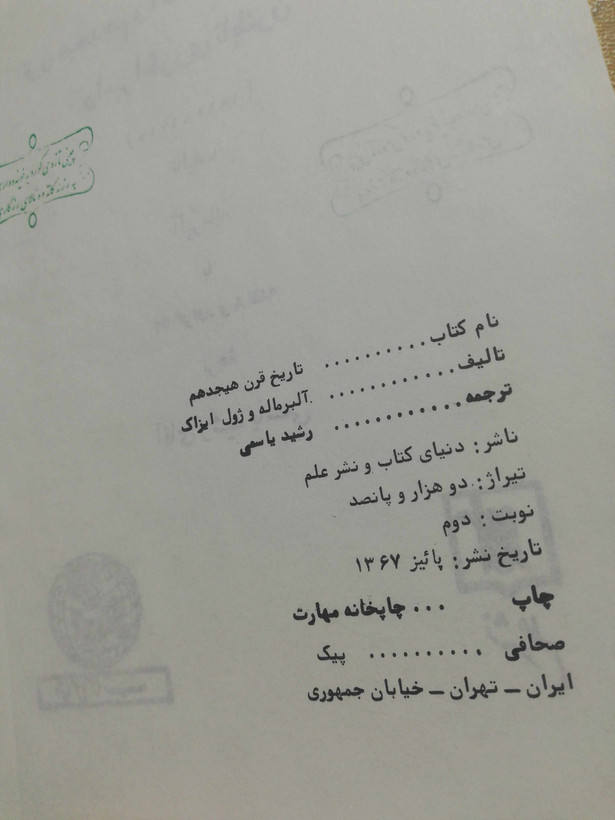 نام کتاب .......... تاریخ قرن هیجدهم
تالیف ............ آلبرماله و ژول ایزاک
ترجمه ............ رشید یاسمی
ناشر: دنیای کتاب و نشر علم
تیراژ: دو هزار و پانصد
نوبت: دوم
تاریخ نشر: پائیز ۱۳۶۷
چاپ ... چاپخانه مهارت
صحافی .......... پیک
ایران ـ تهران ـ خیابان جمهوری